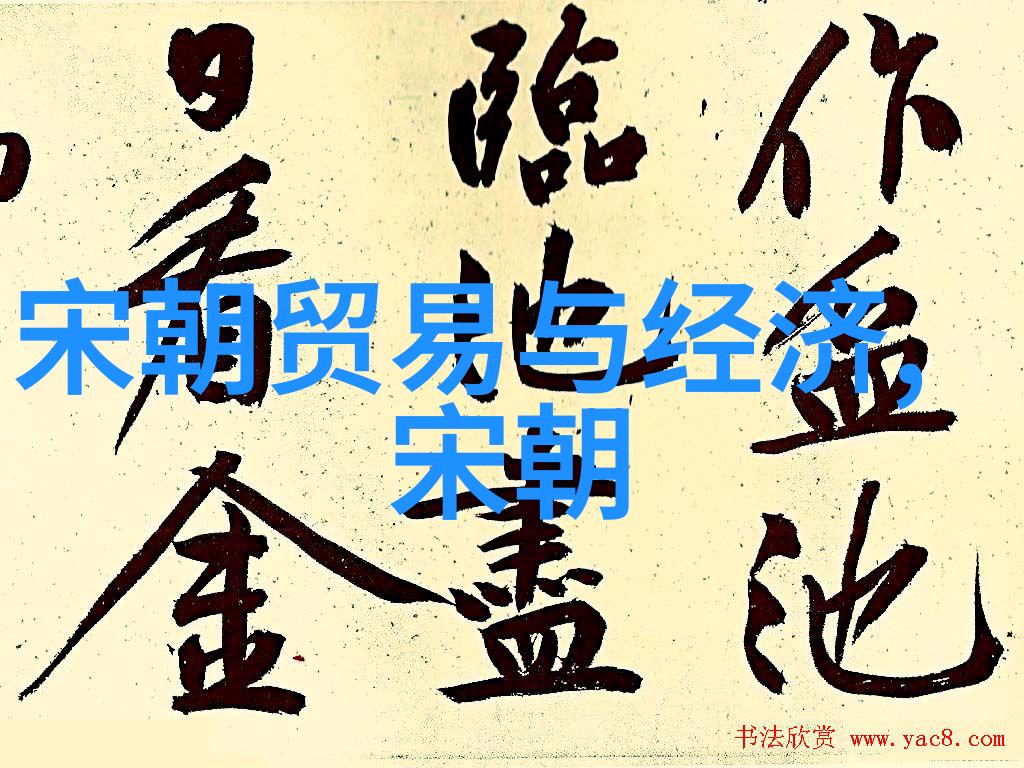 宋朝贸易与经济,
宋朝
作盆池
臨池盡
日看金
书法欣赏 www.yac8.com